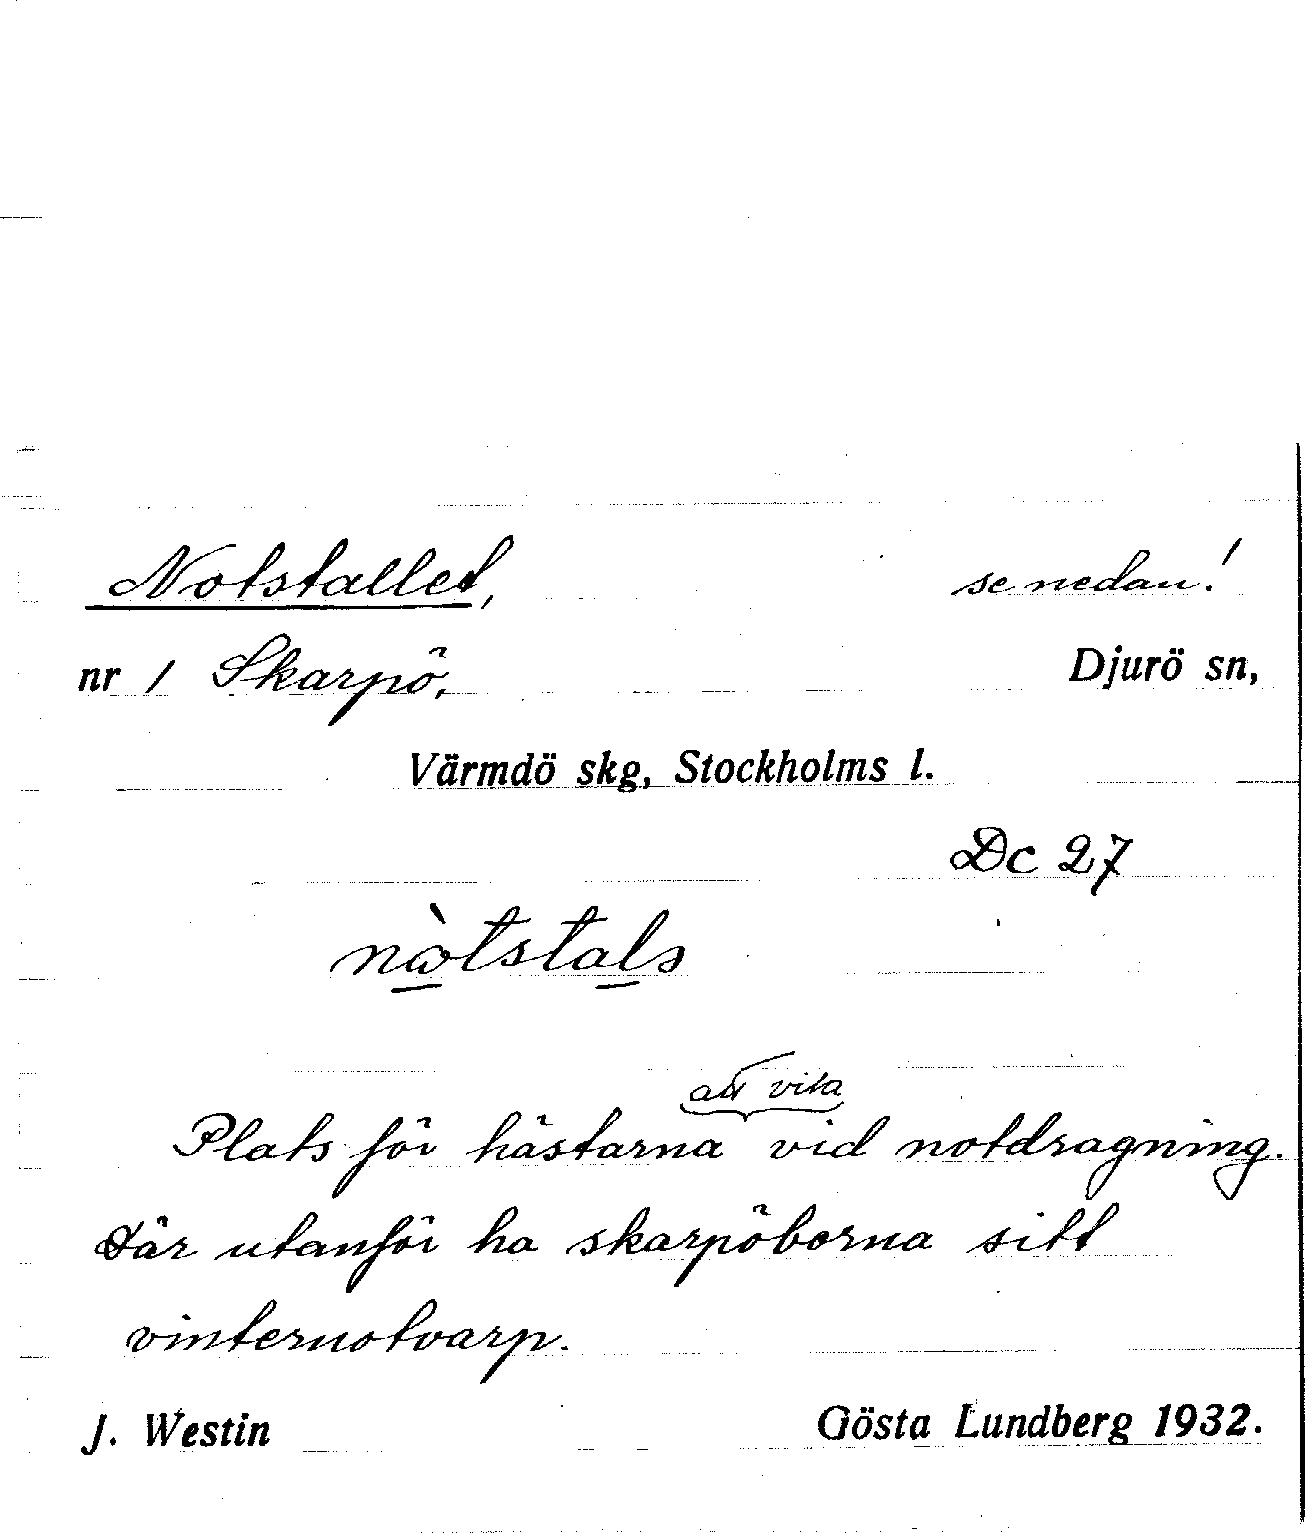 Notstallet, se nedan!
nr 1 Skarpö, Djurö sn,
Värmdö skg, Stockholms l.
Dc 27
att vila
Plats för hästarna vid notdragning.
Där utanför ha skarpöborna sitt
vinternotvarp.
J. Westin Gösta Lundberg 1932.